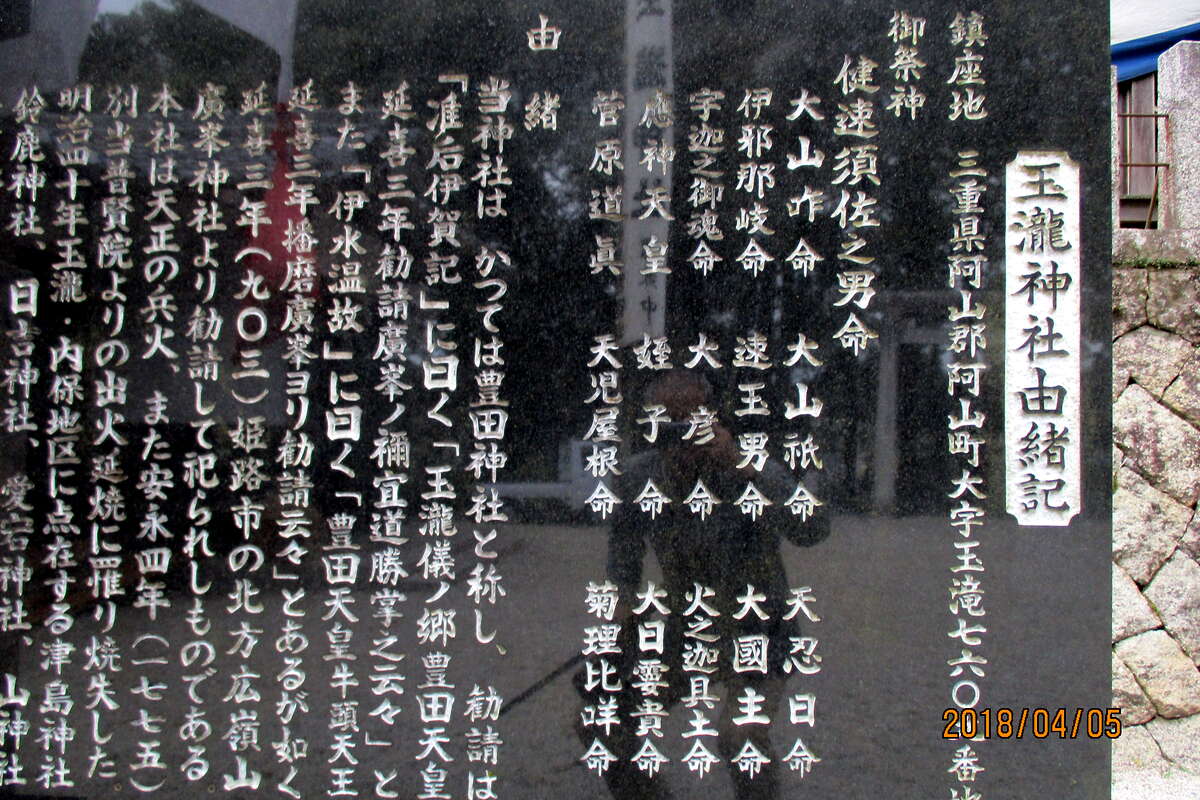 玉瀧神社由緒記
鎮座地 三重県阿山郡阿山町大字玉滝七六〇一番地
御祭神
健速須佐之男命
大山咋命 大山祇命 天忍日命
伊邪那岐命 速玉男命 大國主命
宇迦之御魂命 大彦命 火之迦具土命
應神天皇 蛭子命 大日孁貴命
菅原道眞 天児屋根命 菊理比咩命
由緒
当神社は かつては豊田神社と称し、勧請は
「准后伊賀記」に曰く「玉瀧儀ノ郷豊田天皇
延喜三年勧請廣峯ノ禰宜道勝掌之云々」と
また「伊水温故」に曰く「豊田天皇牛頭天王
延喜三年播磨廣峯ヨリ勧請云々」とあるが如く
延喜三年(九〇三)姫路市の北方広嶺山
廣峯神社より勧請して祀られしものである
本社は天正の兵火、また安永四年(一七七五)
別当普賢院よりの出火延焼に罹り焼失した
明治四十年玉瀧・内保地区に点在する津島神社
鈴鹿神社、日吉神社、愛宕神社、山神社
2018/04/05